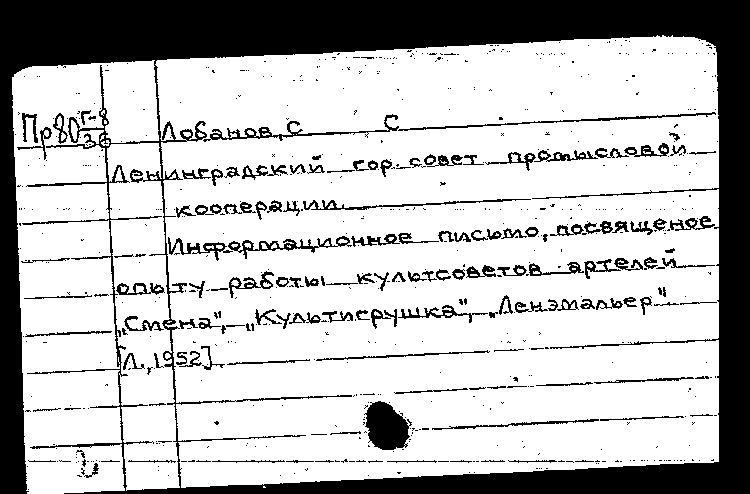 Пр80 Г-8/36 Лобанов, С С
Ленинградский гор. совет промысловой
кооперации.
Информационное письмо, посвященое
опыту работы культсоветов артелей
„Смена", „Культигрушка", „Ленэмальер".
[Л., 1952]